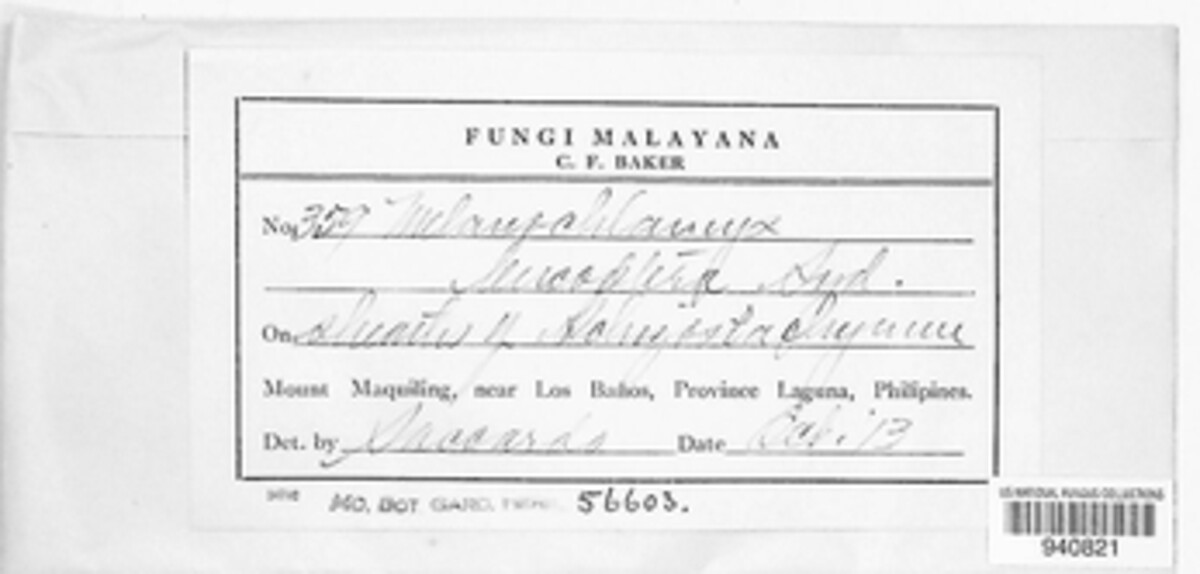 FUNGI MALAYANA
C. F. BAKER
No. 359 Melanochlamyx
leucoptera Syd.
On Sheaths of Schizostachyum
Mount Maquiling, near Los Baños, Province Laguna, Philipines.
Det. by Saccardo Date '13
MO. BOT. GARD. HERB. 56603.
US NATIONAL FUNGUS COLLECTIONS
940821